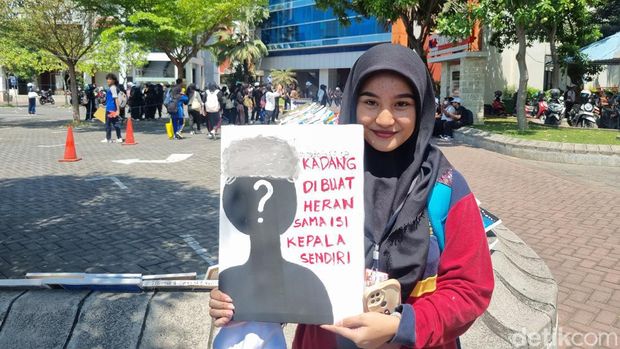 KADANG
DIBUAT
HERAN
SAMA ISI
KEPALA
SENDIRI
?
detikcom